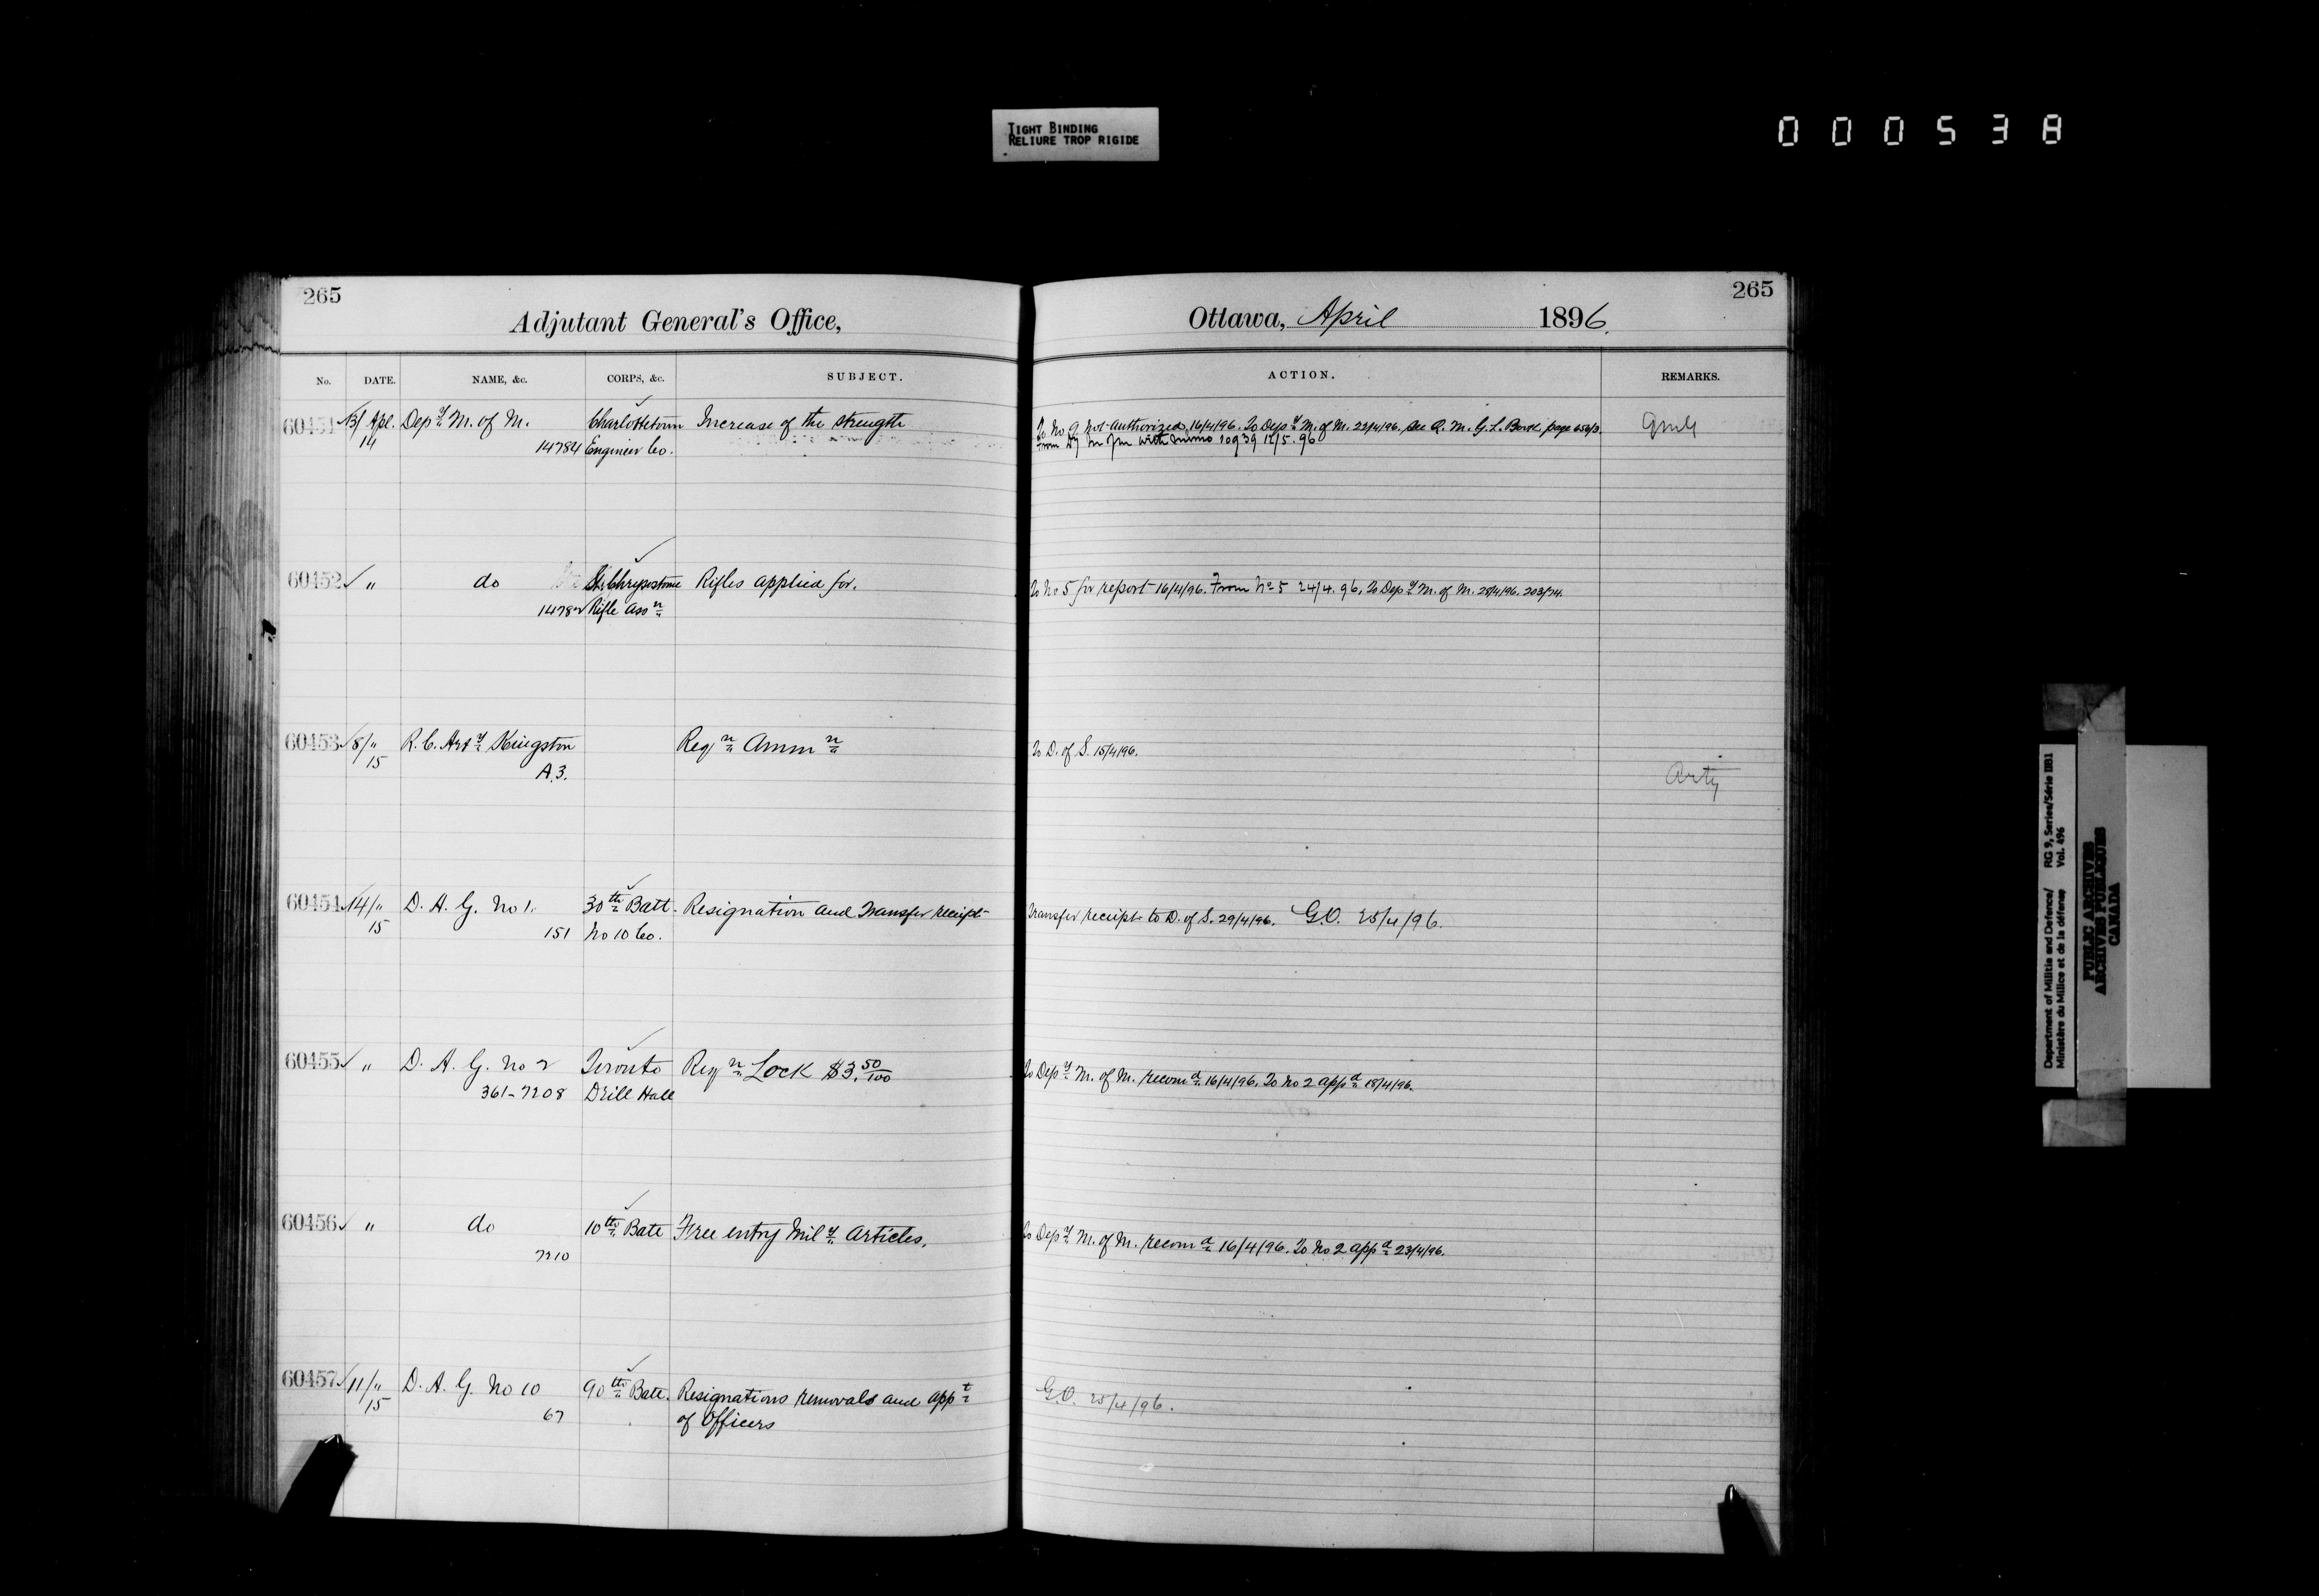 TIGHT BINDING
RELIURE TROP RIGIDE
000538
265
Adjutant General's Office,
No. DATE. NAME, &c. CORPS, &c. SUBJECT.
60451 13/14 Apl. Depy M. of M. Charlottetown Increase of the strength
14784 Engineer Co.
60452 " do St. Chrysostome Rifles applied for.
14782 Rifle Assn
60453 8/15 " R. C. Arty Kingston Reqn Ammn
A.3.
60454 14/15 " D. A. G. No 1. 30th Batt. Resignation and Transfer receipt
151 No 10 Co.
60455 " D. A. G. No 2 Toronto Reqn Lock $3.50/100
361-7208 Drill Hall
60456 " do 10th Batt Free entry Mily Articles.
7210
60457 11/15 " D. A. G. No 10 90th Batt. Resignations removals and appt
67 of Officers
265
Ottawa, April 1896.
ACTION. REMARKS.
To No 9 not authorized, 16/4/96. To Depy M. of M. 23/4/96. see Q. M. G. L. Book, page
from with memo 10939 12/5.96
To No 5 for report 16/4/96. From No 5 24/4.96. To Depy M. of M. 28/4/96. 203/74.
To D. of S. 15/4/96.
Arty
Transfer receipt to D. of S. 29/4/96. G.O. 25/4/96.
To Depy M. of M. recomd 16/4/96. To No 2 appd 18/4/96.
To Depy M. of M. recomd 16/4/96. To No 2 appd 23/4/96.
G.O. 25/4/96.
Department of Militia and Defence/ RG 9, Series/Série IIB1
Ministère du Milice et de la défense Vol. 496
PUBLIC ARCHIVES
ARCHIVES PUBLIQUES
CANADA